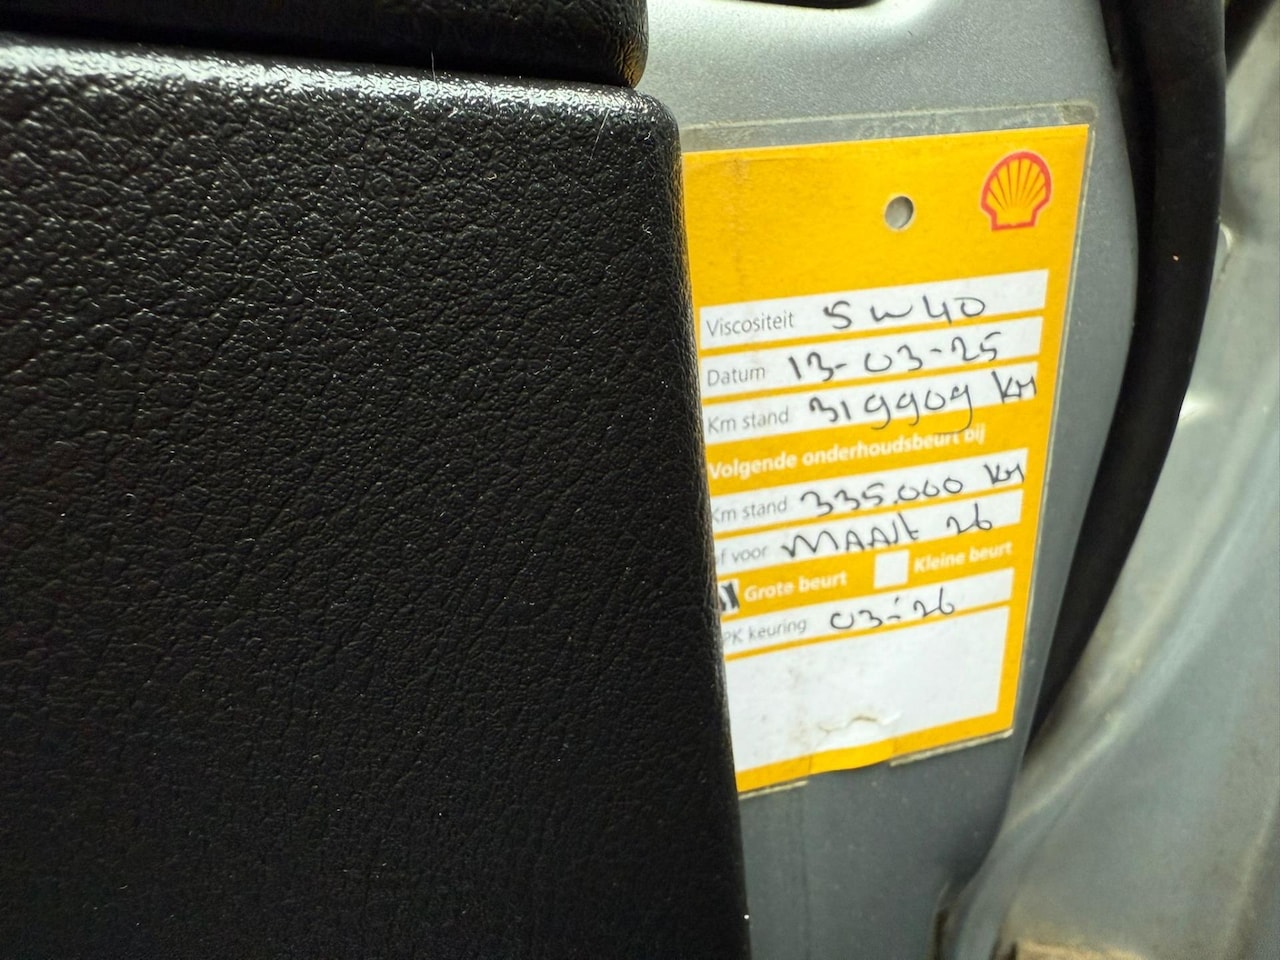 Viscositeit 5w40
Datum 13-03-25
Km stand 319909 km
Volgende onderhoudsbeurt bij
Km stand 335.000 km
of voor MAART 26
Grote beurt Kleine beurt
PK keuring 03-'26